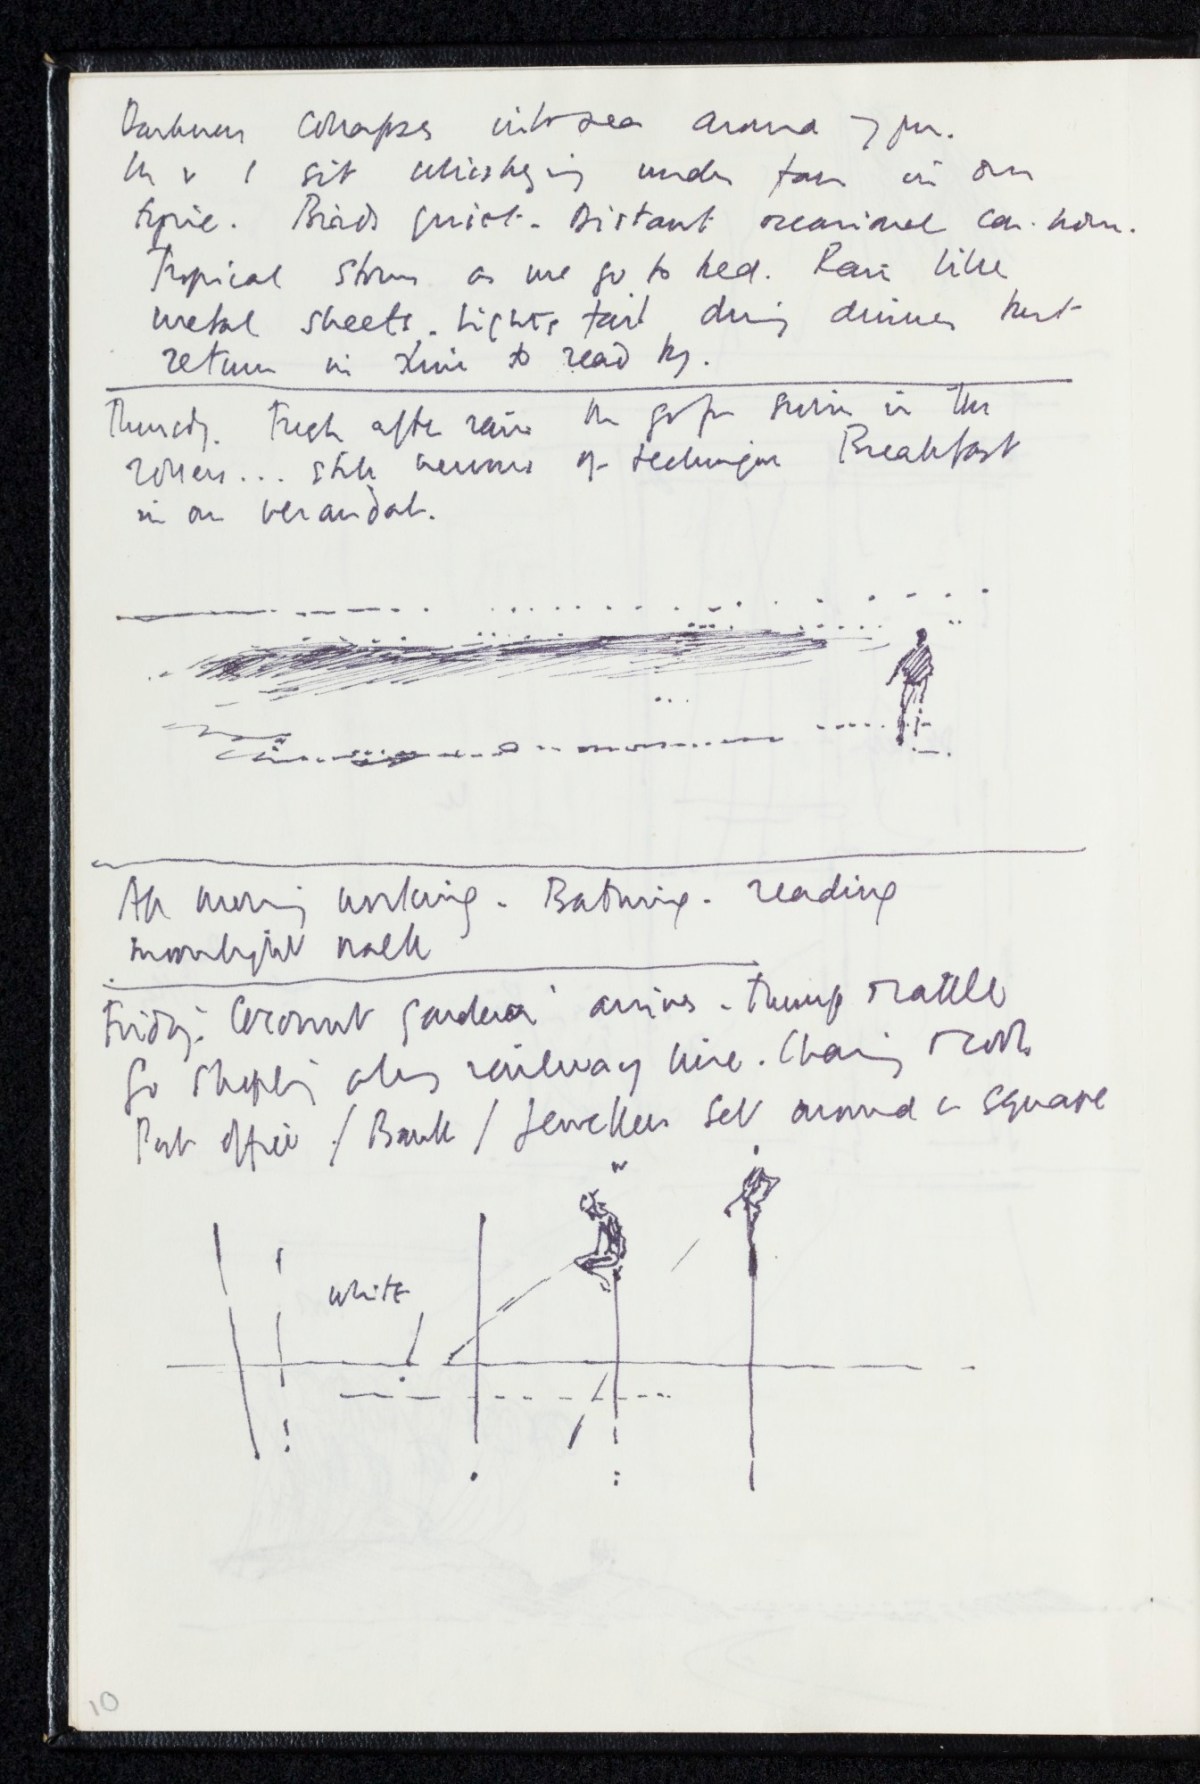 Darkness collapses into sea around 7 pm.
M & I sit whiskying under fan in our
Birds quiet. Distant occasional car horn.
Tropical storm as we go to bed. Rain like
metal sheets. Lights fail during dinner but
return in time to read by.
Thursday. Fresh after rain M goes for swim in the
rollers... still nervous of technique Breakfast
in our verandah.
All morning working. Bathing. reading
moonlight walk
Friday. Coconut gardener arrives. thump rattle
Go shopping along railway line.
Post office / Bank / Jewellers set around a square
white
10